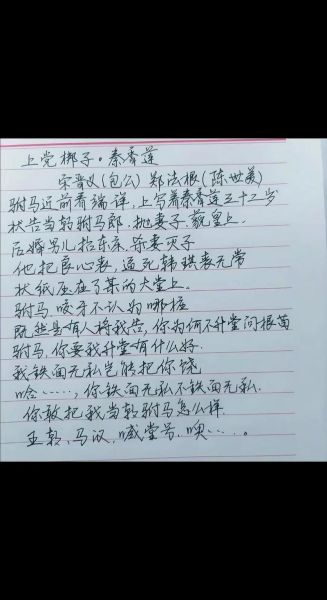 上党梆子·秦香莲
宋晋义(包公) 郑法根(陈世美)
驸马近前看端详,上写着秦香莲三十二岁
状告当朝驸马郎.抛妻子藐皇上.
后婚男儿招东床.杀妻灭子
他把良心丧,逼死韩琪丧无常
状纸压在了某的大堂上.
驸马,咬牙不认为哪桩
既然是有人将我告,你为何不升堂问根苗
驸马,你要我升堂有什么好.
我铁面无私岂能把你饶
哈……,你铁面无私不铁面无私.
你敢把我当朝驸马怎么样.
王朝,马汉,喊堂号.噢…。